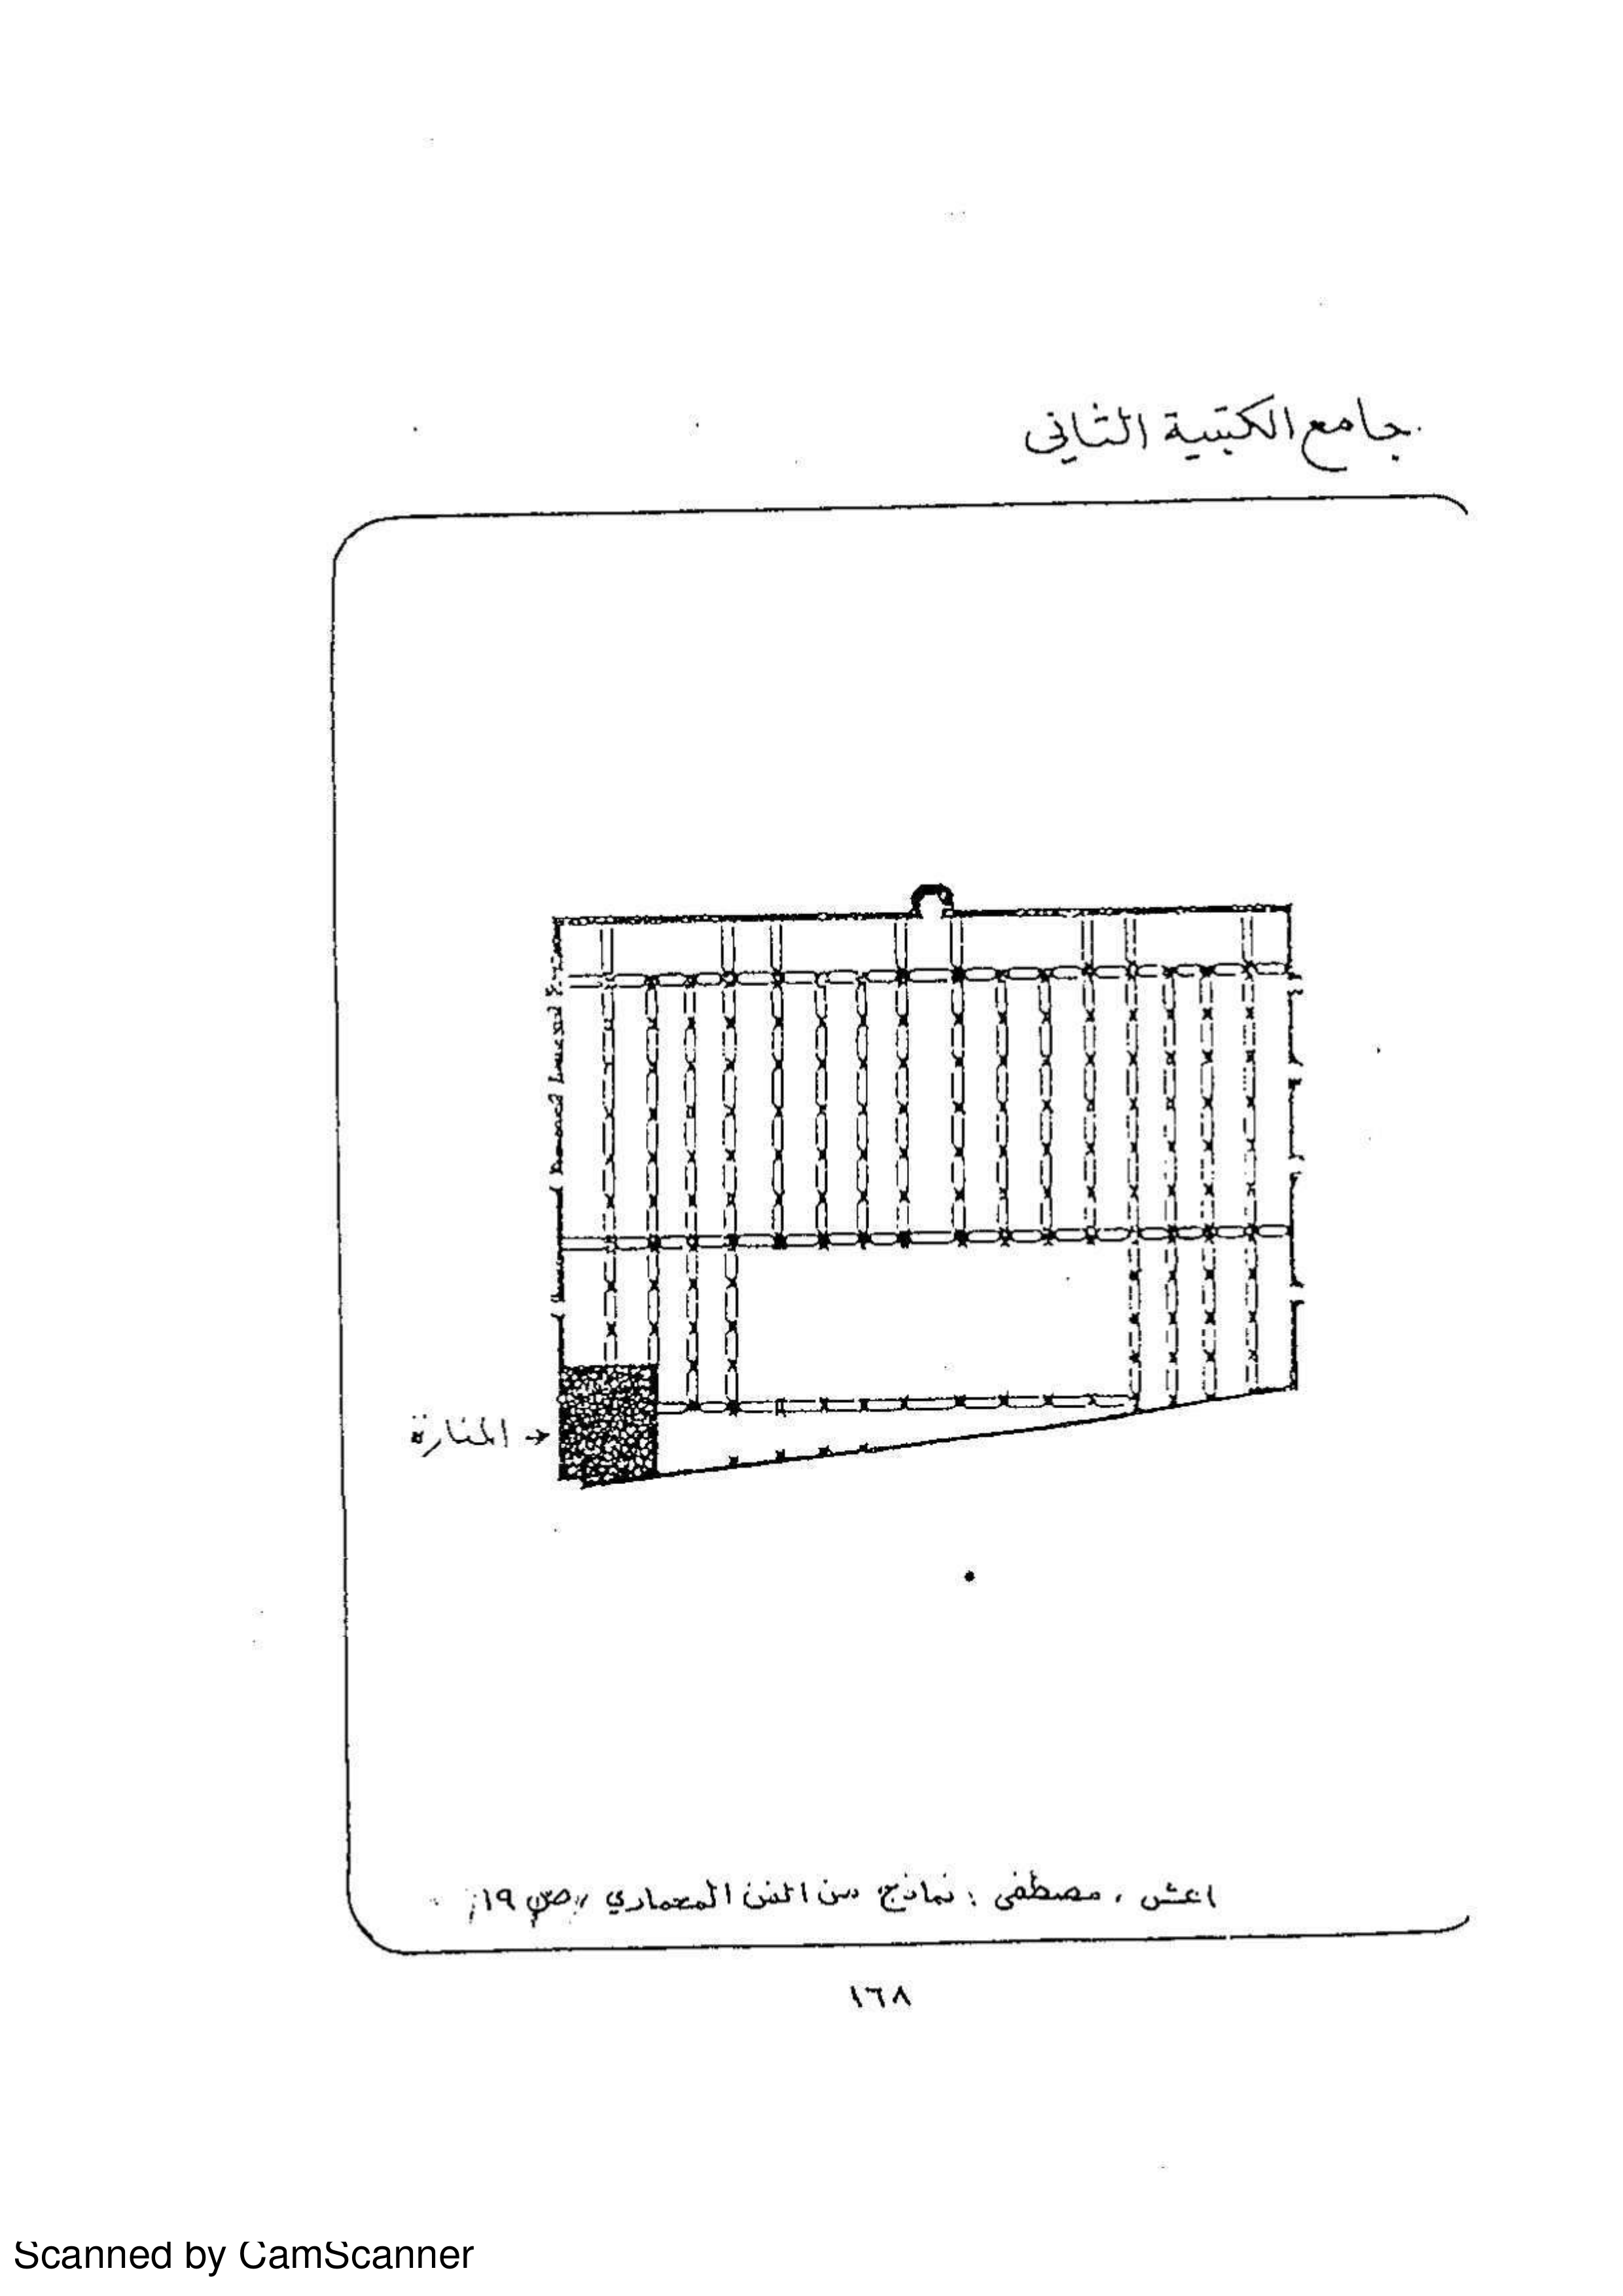 جامع الكتبية الثاني
المنارة
اعشى ، مصطفى : نماذج من الفن المعماري ، ص ١٩
١٦٨
Scanned by CamScanner